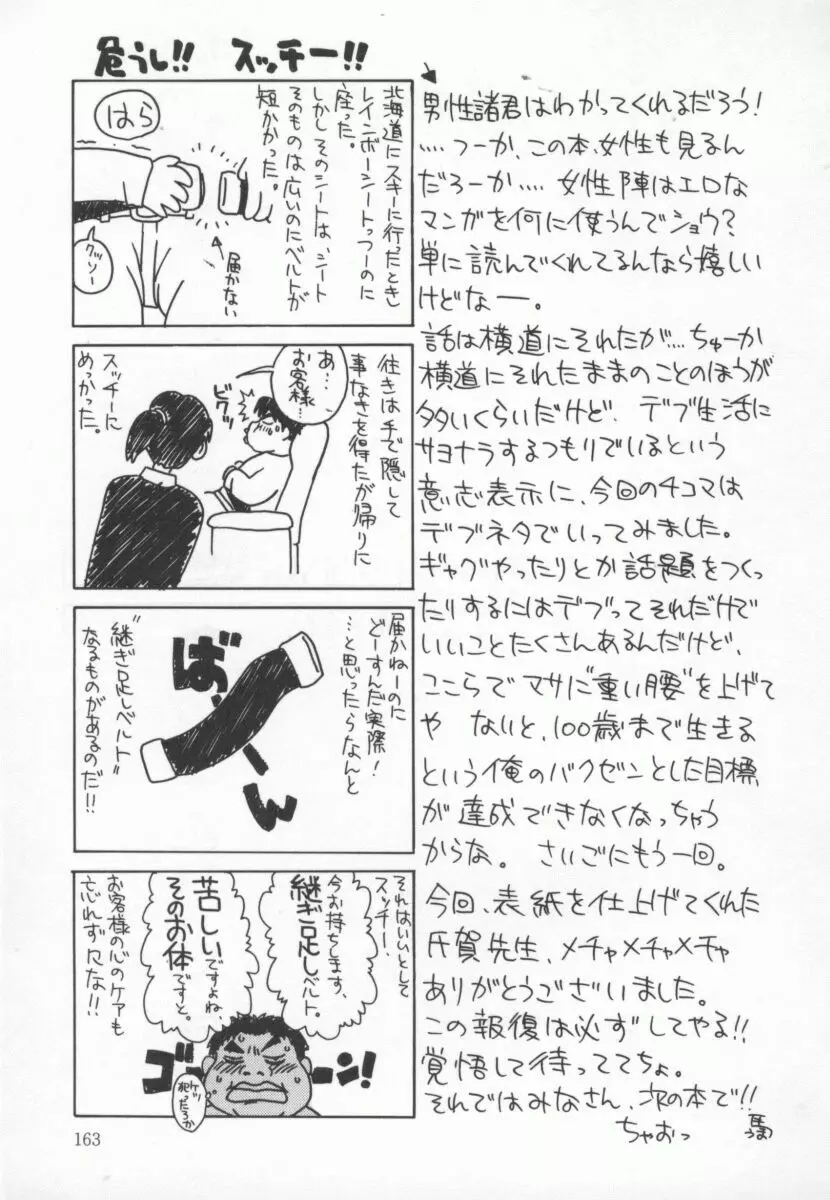 危うし!!　スッチー!!
北海道にスキーに行ったとき
レインボーシートっつーのに
座った。
しかしそのシートは、シート
そのものは広いのにベルトが
短かかった。
はら
届かない
クソー
あ…
お客様…
ビクッ
往きは手で隠して
事なきを得たが帰りに
スッチーに
めっかった。
届かねーのに
どーすんだ実際!
…と思ったらなんと
ばぁーん
"継ぎ足しベルト"
なるものがあるのだ!!
それはいいとして
スッチー、
今お持ちします、
継ぎ足しベルト。
苦しいですよね、
そのお体ですと。
お客様の心のケアも
忘れずにな!!
ゴーーン!
男性諸君はわかってくれるだろう!
‥‥つーか、この本、女性も見るん
だろーか‥‥女性陣はエロな
マンガを何に使うんでショウ?
単に読んでくれてるんなら嬉しい
けどなー。
話は横道にそれたが…ちゅーか
横道にそれたままのことのほうが
多いくらいだけど、デブ生活に
サヨナラするつもりでいるという
意志表示に、今回の4コマは
デブネタでいってみました。
ギャグやったりとか話題をつくっ
たりするにはデブってそれだけで
いいことたくさんあるんだけど、
ここらでマサに"重い腰"を上げて
や　ないと、100歳まで生きる
という俺のバクゼンとした目標
が達成できなくなっちゃう
からな。さいごにもう一回。
今回、表紙を仕上げてくれた
氏賀先生、メチャメチャメチャ
ありがとうございました。
この報復は必ずしてやる!!
覚悟して待っててちょ。
それではみなさん、次の本で!!
ちゃおっ
163